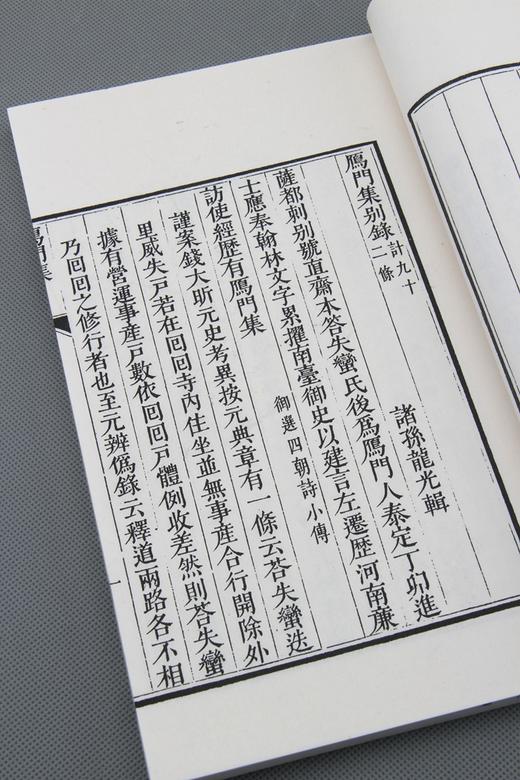 鴈門集别錄計九十二條
諸孫龍光輯
薩都剌别號直齋本答失蠻氏後為鴈門人泰定丁卯進
士應奉翰林文字累擢南臺御史以建言左遷歷河南廉
訪使經歷有鴈門集
御選四朝詩小傳
謹案錢大昕元史考異按元典章有一條云荅失蠻迭
里威失戸若在囘囘寺內住坐並無事産合行開除外
據有營運事産戸數依囘囘戸體例收差然則荅失蠻
乃囘囘之修行者也至元辨僞錄云釋道兩路各不相
鴈門集
一